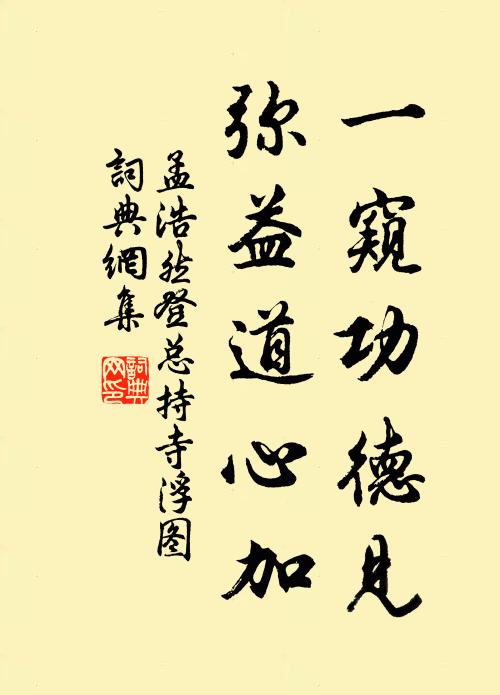 一窥功德见
弥益道心加
孟浩然登总持寺浮图
詞典網集
詞典网印